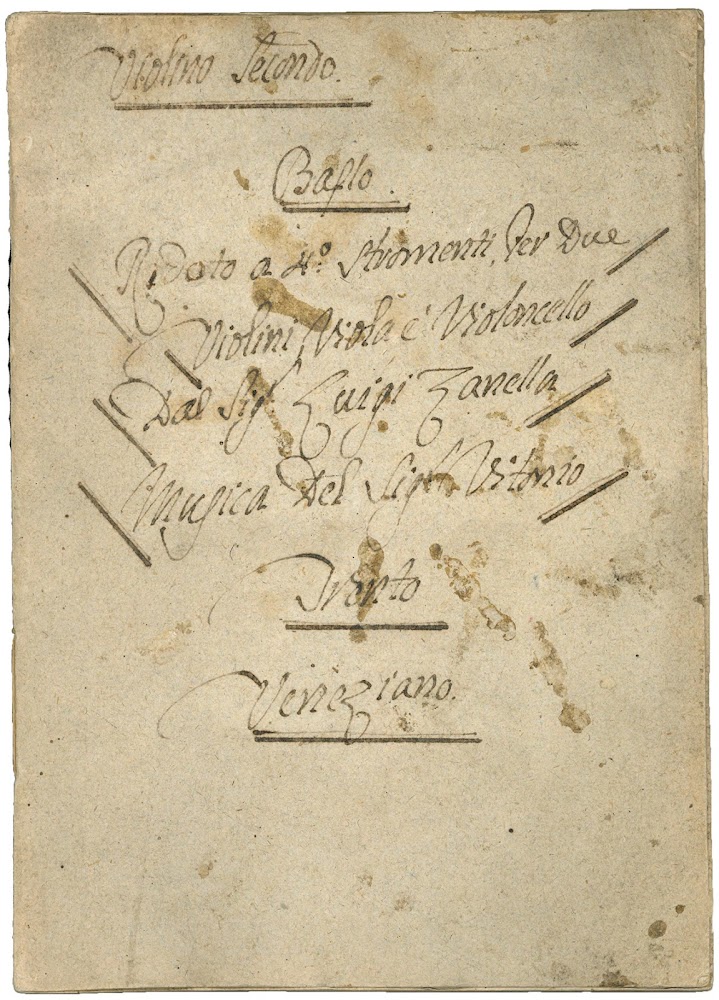 Violino Secondo.
Baſlo.
Ridoto a 4.º Stromenti, Per Due
Violini, Viola è Violoncello
Dal Sig.r Luigi Zanella
Musica Del Sig.r Vitorio
Trento
Veneziano.